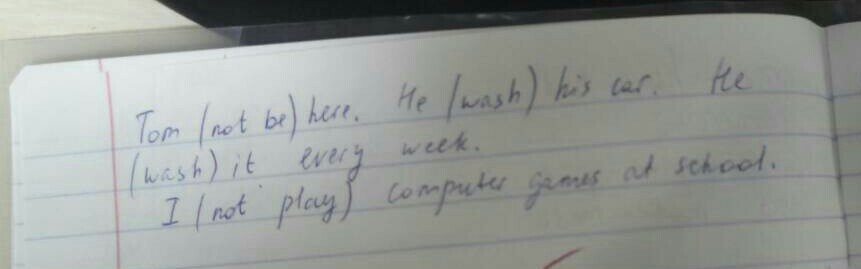 Tom (not be) here. He (wash) his car. He
(wash) it every week.
I (not play) computer games at school.